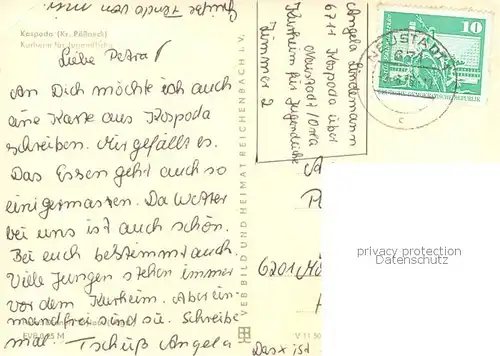 Kospoda (Kr. Pößneck)
Kurheim für Jugendliche
Liebe Petra!
An Dich möchte ich auch
eine Karte aus Kospoda
schreiben. Mir gefällt es.
Das Essen geht auch so
einigermassen. Da Wetter
bei uns ist auch schön.
Bei euch bestimmt auch.
Viele Jungen stehen immer
vor dem Kurheim. Aber ein-
wandfrei sind sie. Schreibe
mal. Tschüß Angela
EVP 0,25 M
VEB BILD UND HEIMAT REICHENBACH I. V.
V 11 50
Angela Lindemann
6711 Kospoda über
Neustadt/Orla
Kurheim für Jugendliche
Zimmer 2
10
DEUTSCHE DEMOKRATISCHE REPUBLIK
NEUSTADT
c
privacy protection
Datenschutz
6201
Das ist